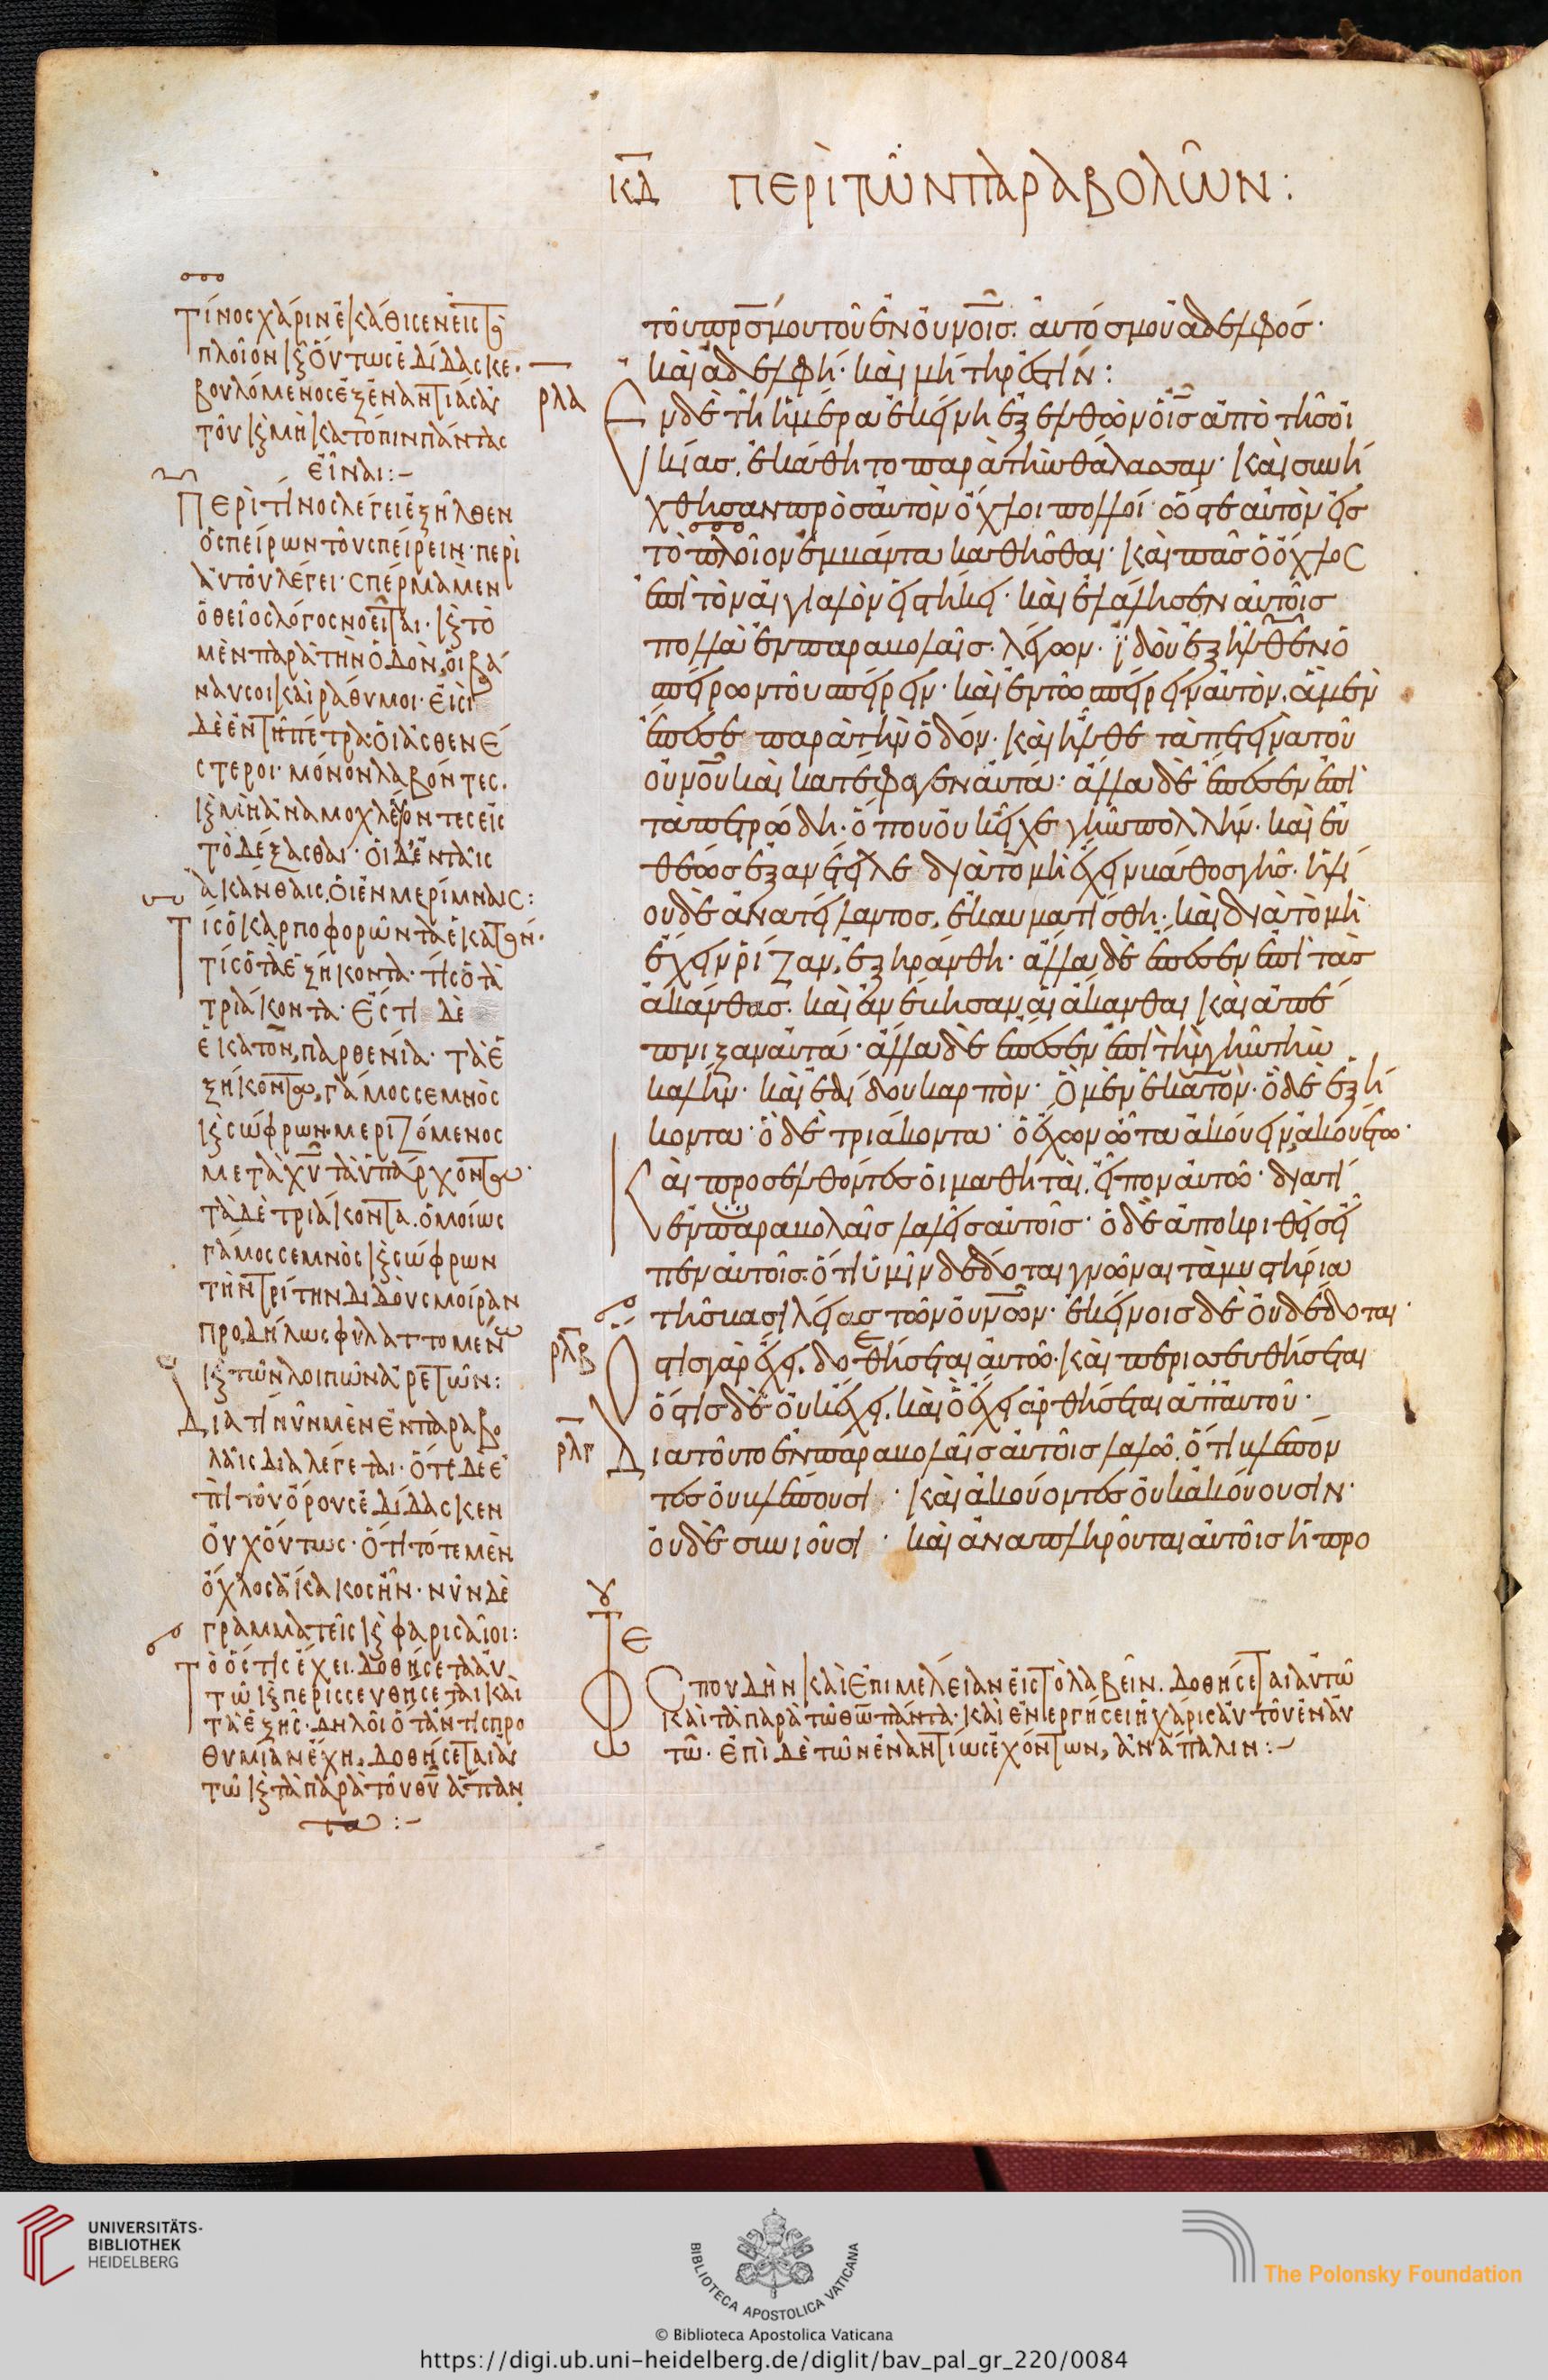 κδ περὶ τῶν παραβολῶν:
Τίνος χάριν ἐκάθισεν εἰς τὸ
πλοῖον κ οὕτως ἐδίδασκε.
βουλόμενος ἐξ ἐναντίας αὐ
τοῦ κ μὴ κατόπιν πάντας
εἶναι:-
Περὶ τίνος λέγει ἐξῆλθεν
ὁ σπείρων τοῦ σπείρειν· περὶ
αὐτοῦ λέγει· σπέρμα μὲν
ὁ θεῖος λόγος νοεῖται· κ τὸ
μὲν παρὰ τὴν ὁδὸν, οἱ βά
ναυσοι καὶ ῥάθυμοι· εἰσὶ
δὲ ἐν τῆ πέτρα· οἱ ἀσθενέ
στεροι· μόνον λαβόντες.
κ μὴ ἀναμοχλεύοντες εἰς
τὸ δέξασθαι· οἱ δ' ἐν ταῖς
ἀκάνθαις, οἱ ἐν μερίμναις:
Τίς ὁ καρποφορῶν τὰ ἑκατόν·
τίς ὁ τὰ ἑξήκοντα· τίς ὁ τὰ
τριάκοντα· ἔστι δὲ
ἑκατὸν, παρθενία· τὰ ἑ
ξήκοντα, γάμος σεμνὸς
κ σώφρων· μεριζόμενος
μετὰ χυ τὰ ὑπάρχοντα·
τὰ δὲ τριάκοντα. ὁμοίως
γάμος σεμνὸς κ σώφρων
τὴν τρίτην διδοὺς μοίραν
προδήλως φυλαττομέν
κ τῶν λοιπῶν ἀρετῶν:
Διατί νῦν μὲν ἐν παραβο
λαῖς διαλέγεται· ὅτε δὲ ἐ
πὶ τοῦ ὄρους ἐδίδασκεν
οὐχ οὕτως· ὅτι τότε μὲν
ὄχλος ἄκακος ἦν· νῦν δὲ
γραμματεῖς κ φαρισαῖοι:
Τὸ ὅστις ἔχει. δοθήσεται αὐ
τῶ κ περισσευθήσεται καὶ
τὰ ἑξῆς· δηλοῖ ὅταν τίς προ
θυμίαν ἔχη, δοθήσεται αὐ
τῶ κ τὰ παρὰ τοῦ θυ ἅπαν
τα:-
τοῦ πρσ μου τοῦ ἐν οὐνοις. αὐτός μου ἀδελφός·
καὶ ἀδελφή· καὶ μήτηρ ἐστίν:
ρλα Ἐν δὲ τῆ ἡμέρα ἐκείνη ἐξελθὼν ὁ ις ἀπὸ τῆς οἰ
κίας. ἐκάθητο παρὰ τὴν θάλασσαν· καὶ συνή
χθησαν πρὸς αὐτὸν ὄχλοι πολλοί· ὥστε αὐτὸν εἰσ
τὸ πλοῖον ἐμβάντα καθῆσθαι· καὶ πᾶς ὁ ὄχλος
ἐπὶ τὸν αἰγιαλὸν εἱστήκει· καὶ ἐλάλησεν αὐτοῖς
πολλὰ ἐν παραβολαῖς. λέγων· ἰδοὺ ἐξῆλθεν ὁ
σπείρων τοῦ σπείρειν· καὶ ἐν τῶ σπείρειν αὐτὸν. ἃ μὲν
ἔπεσε παρὰ τὴν ὁδόν· καὶ ἦλθε τὰ πετεινὰ τοῦ
οὐνου καὶ κατέφαγεν αὐτά· ἄλλα δὲ ἔπεσεν ἐπὶ
τὰ πετρώδη· ὅπου οὐκ εἶχε γῆν πολλήν· καὶ εὐ
θέως ἐξανέτειλε διὰ τὸ μὴ ἔχειν βάθος γῆς· ἡλί
ου δὲ ἀνατείλαντος, ἐκαυματίσθη· καὶ διὰ τὸ μὴ
ἔχειν ῥίζαν, ἐξηράνθη· ἄλλα δὲ ἔπεσεν ἐπὶ τὰς
ἀκάνθας· καὶ ἀνέβησαν αἱ ἄκανθαι καὶ ἀπέ
πνιξαν αὐτά· ἄλλα δὲ ἔπεσεν ἐπὶ τὴν γῆν τὴν
καλήν· καὶ ἐδίδου καρπὸν· Ὃ μὲν ἑκατὸν· ὃ δὲ ἑξή
κοντα· ὃ δὲ τριάκοντα· ὁ ἔχων ὦτα ἀκούειν ἀκουέτω·
Καὶ προσελθόντες οἱ μαθηταὶ, εἶπον αὐτῶ· διατί
ἐν παραβολαῖς λαλεῖς αὐτοῖς· ὁ δὲ ἀποκριθεὶς εἶ
πεν αὐτοῖς· ὅτι ὑμῖν δέδοται γνῶναι τὰ μυστήρια
τῆς βασιλείας τῶν οὐνων. ἐκείνοις δὲ οὐ δέδοται·
ρλβ Ὅστις γὰρ ἔχει. δοθήσεται αὐτῶ· καὶ περισσευθήσεται
ὅστις δὲ οὐκ ἔχει. καὶ ὃ ἔχει ἀρθήσεται ἀπ' αὐτοῦ·
ρλγ Διατοῦτο ἐν παραβολαῖς αὐτοῖς λαλῶ. ὅτι βλέπον
τες οὐ βλέπουσι· καὶ ἀκούοντες οὐκ ἀκούουσιν·
οὐδὲ συνιοῦσι· καὶ ἀναπληροῦται αὐτοῖς ἡ προ
Σπουδὴν καὶ ἐπιμέλειαν εἰς τὸ λαβεῖν. δοθήσεται αὐτῶ
καὶ τὰ παρὰ τῶ θω πάντα· καὶ ἐνεργήσει ἡ χάρις αὐτοῦ ἐν αὐ
τῶ· ἐπὶ δὲ τῶν ἐναντίως ἐχόντων, ἀνάπαλιν:-
UNIVERSITÄTS-
BIBLIOTHEK
HEIDELBERG
BIBLIOTECA APOSTOLICA VATICANA
The Polonsky Foundation
© Biblioteca Apostolica Vaticana
https://digi.ub.uni-heidelberg.de/diglit/bav_pal_gr_220/0084